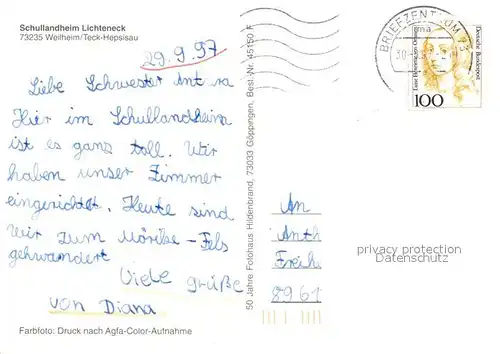 Schullandheim Lichteneck
73235 Weilheim/Teck-Hepsisau
29.9.97
Liebe Schwester Ant ra
Hier im Schullandheim
ist es ganz toll. Wir
haben unser Zimmer
eingerichtet. Heute sind
wir zum Mörike-Fels
gehwandert
Viele grüße
von Diana
Farbfoto: Druck nach Agfa-Color-Aufnahme
50 Jahre Fotohaus Hildenbrand, 73033 Göppingen, Best.-Nr. 45150 F
BRIEFZENTRUM 73
30
Deutsche Bundespost
100
An
Anth
Freih
8961
privacy protection
Datenschutz